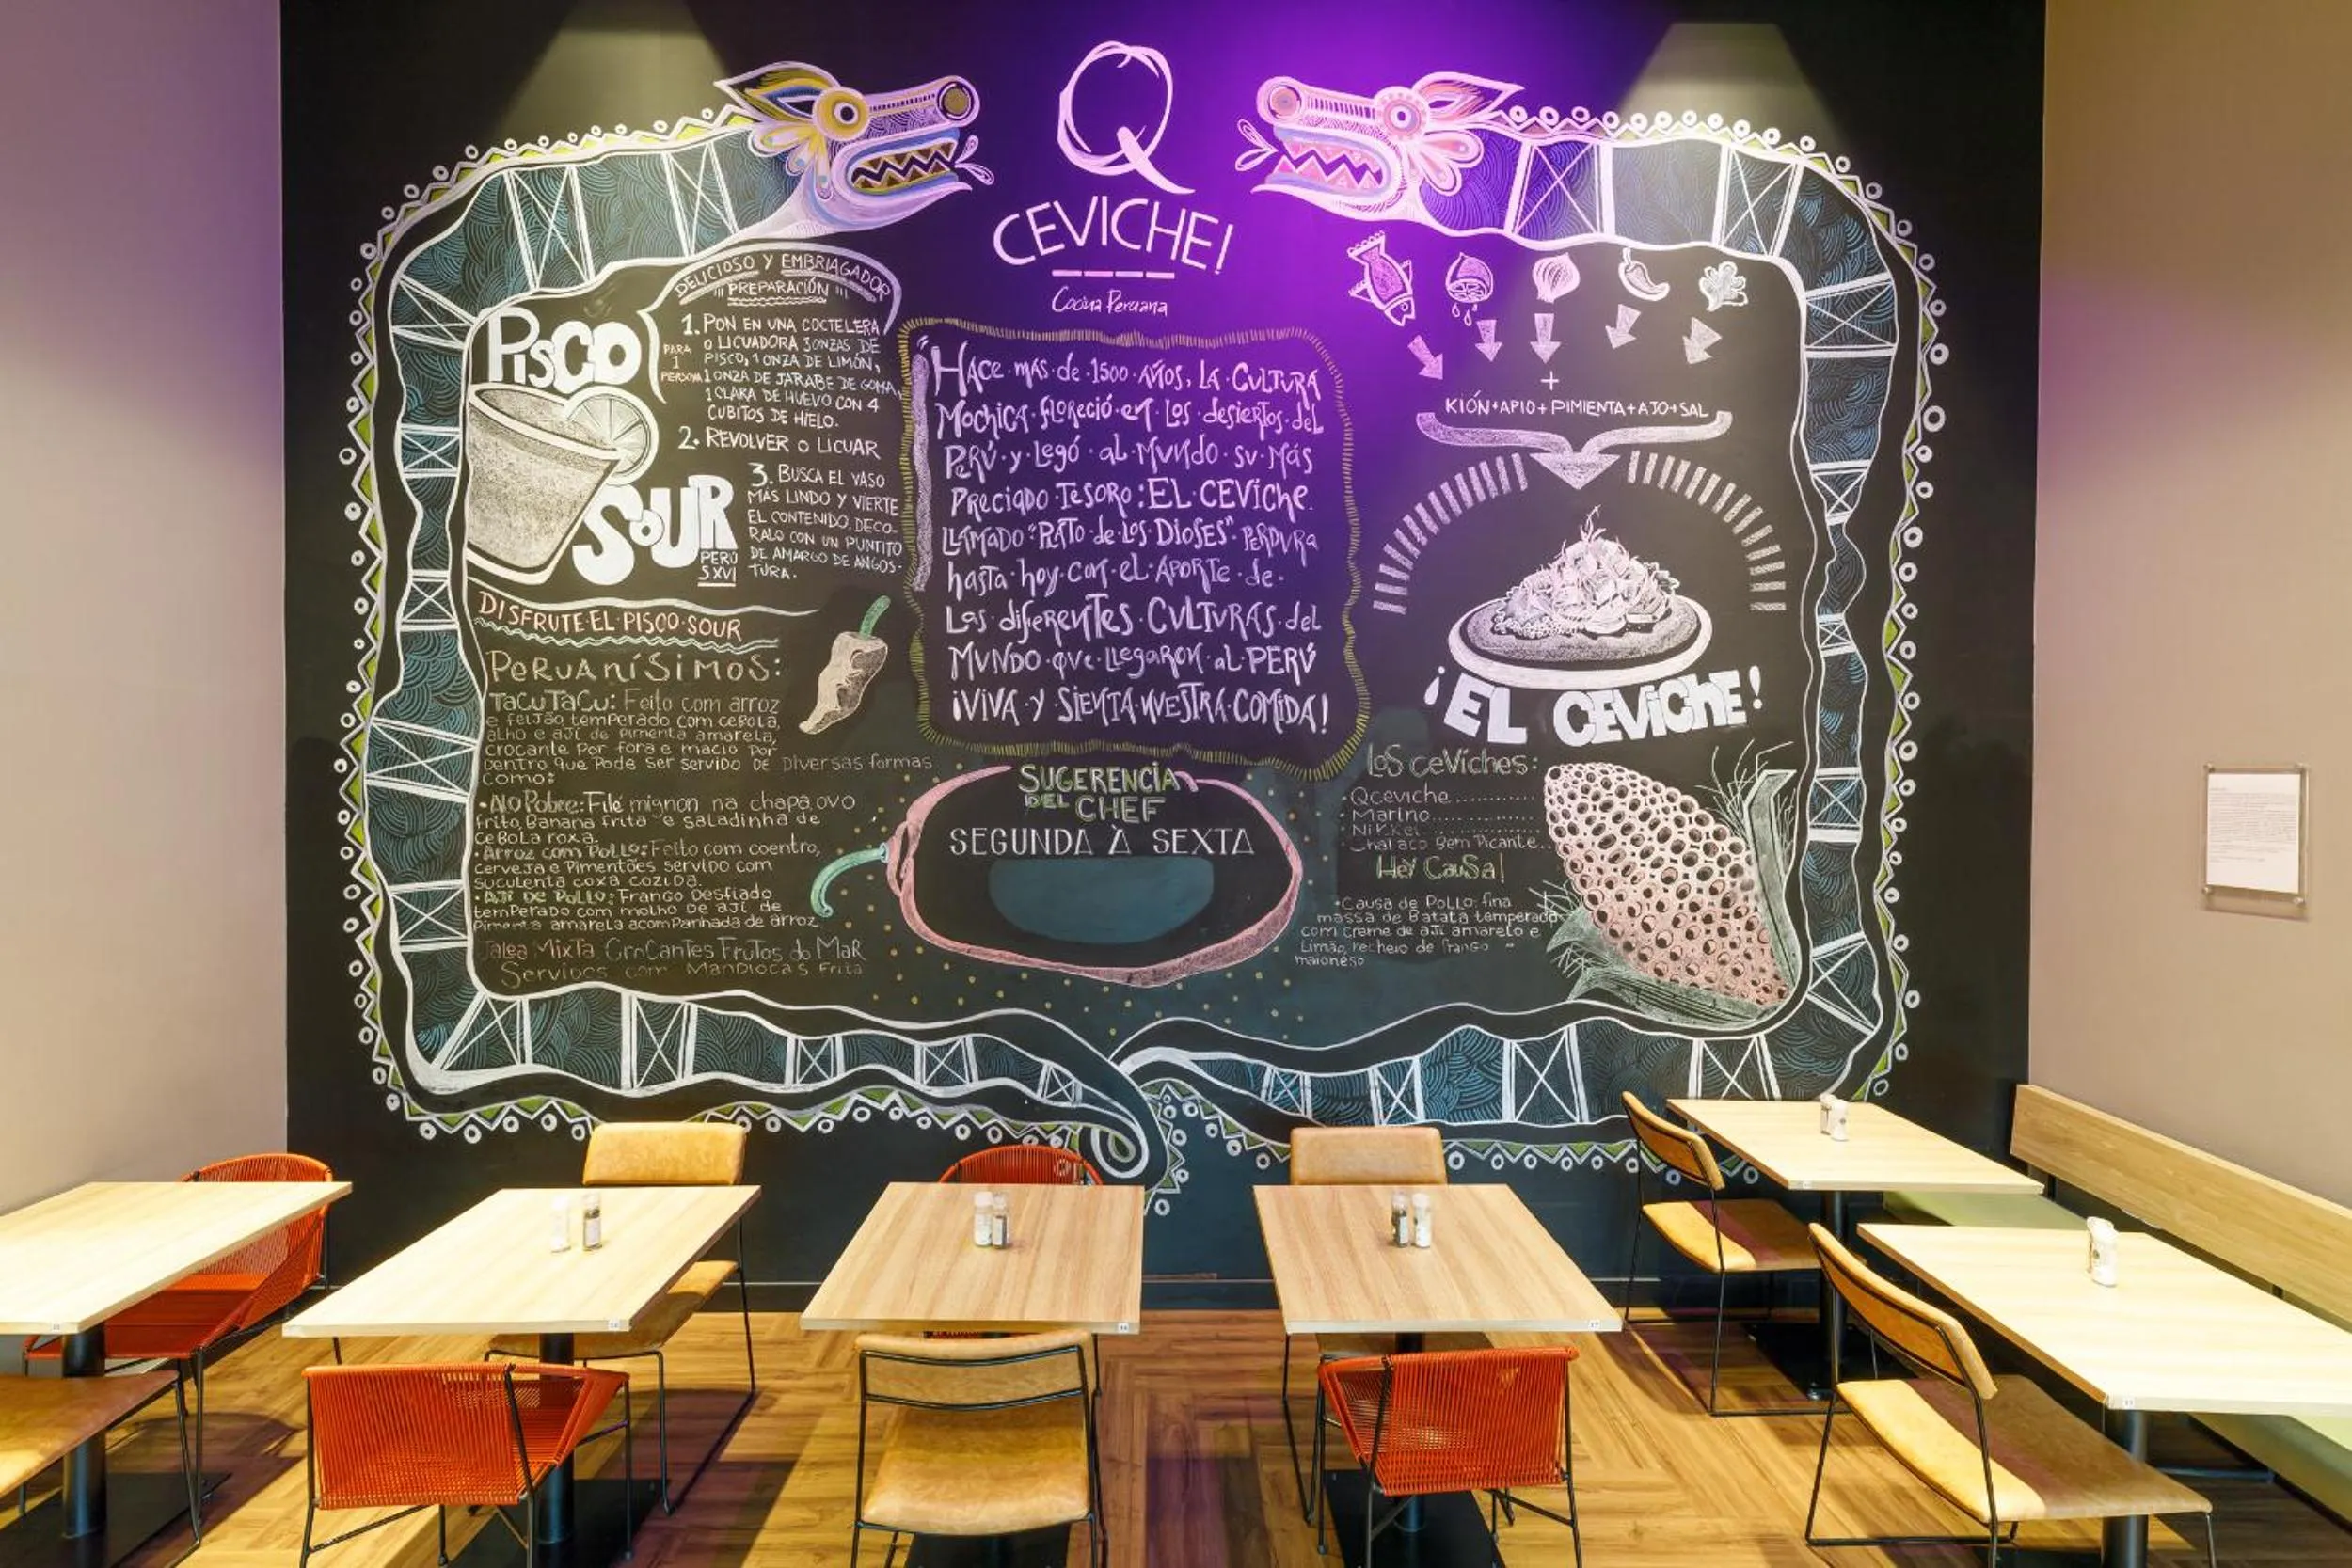 Q
CEVICHE!
Cocina Peruana
DELICIOSO Y EMBRIAGADOR
PREPARACIÓN
PISCO
SOUR
PERÚ
S.XVI
PARA
1
PERSONA
1. PON EN UNA COCTELERA
O LICUADORA 3 ONZAS DE
PISCO, 1 ONZA DE LIMÓN,
1 ONZA DE JARABE DE GOMA,
1 CLARA DE HUEVO CON 4
CUBITOS DE HIELO.
2. REVOLVER O LICUAR
3. BUSCA EL VASO
MÁS LINDO Y VIERTE
EL CONTENIDO. DECO-
RALO CON UN PUNTITO
DE AMARGO DE ANGOS-
TURA.
DISFRUTE·EL·PISCO·SOUR
PERUANÍSIMOS:
TacuTacu: Feito com arroz
e feijão temperado com cebola,
alho e ají de pimenta amarela,
crocante por fora e macio por
dentro que pode ser servido de diversas formas
como:
·A lo Pobre: Filé mignon na chapa, ovo
frito, Banana frita e saladinha de
cebola roxa.
·Arroz com Pollo: Feito com coentro,
cerveja e Pimentões servido com
suculenta coxa cozida.
·Ají de Pollo: Frango Desfiado
temperado com molho de ají de
Pimenta amarela acompanhada de arroz
Jalea Mixta: Crocantes Frutos do Mar
Servidos com Mandiocas Frita
HACE·MÁS·de·1500·AÑOS, LA·CULTURA
MOCHICA·floreció·en·Los·desiertos·del
PERÚ·y·Legó·al·MUNDO·su·Más
PRECIADO·TESORO:EL·CEVICHE.
LLAMADO·"PLATO·de·LOS·DIOSES"·PERDURA
hasta·hoy·con·el·APORTE·de·
Las·diferentes·CULTURAS·del
MUNDO·que·llegaron·al·PERÚ
¡VIVA·Y·SIENTA·NUESTRA·COMIDA!
SUGERENCIA
DEL CHEF
SEGUNDA À SEXTA
+
KIÓN+APIO+PIMIENTA+AJO+SAL
¡EL CEVICHE!
Los ceviches:
·Qceviche............
·Marino............
·Nikkei............
·Chalaco Bem Picante..
Hey Causa!
·Causa de Pollo: fina
massa de Batata temperada
com creme de ají amarelo e
Limão, recheio de frango
maionése